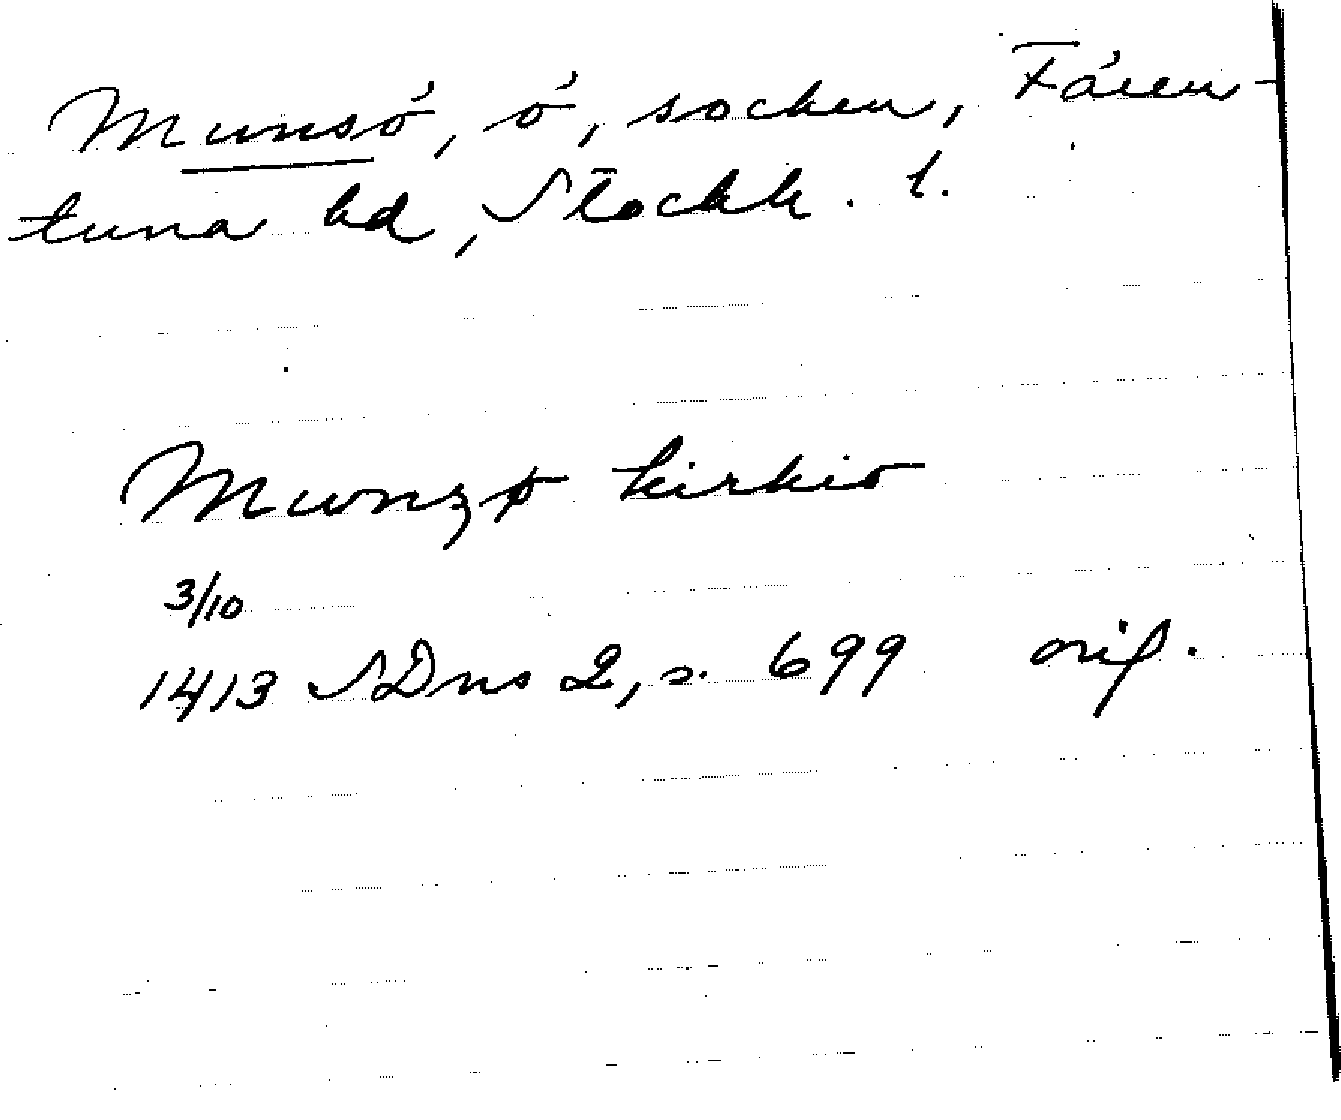 Munsö, ö, socken, Fären-
tuna hd, Stockh. l.
Munzø kirkio
3/10
1413 SDns 2, s. 699 orig.